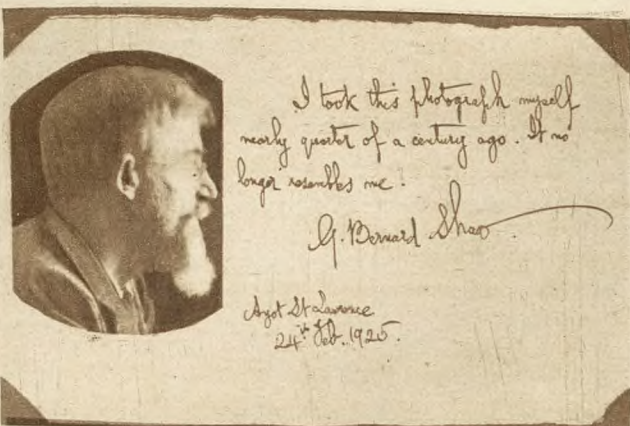 I took this photograph myself
nearly quarter of a century ago. It no
longer resembles me.
G. Bernard Shaw
Ayot St Lawrence
24th Feb. 1925.